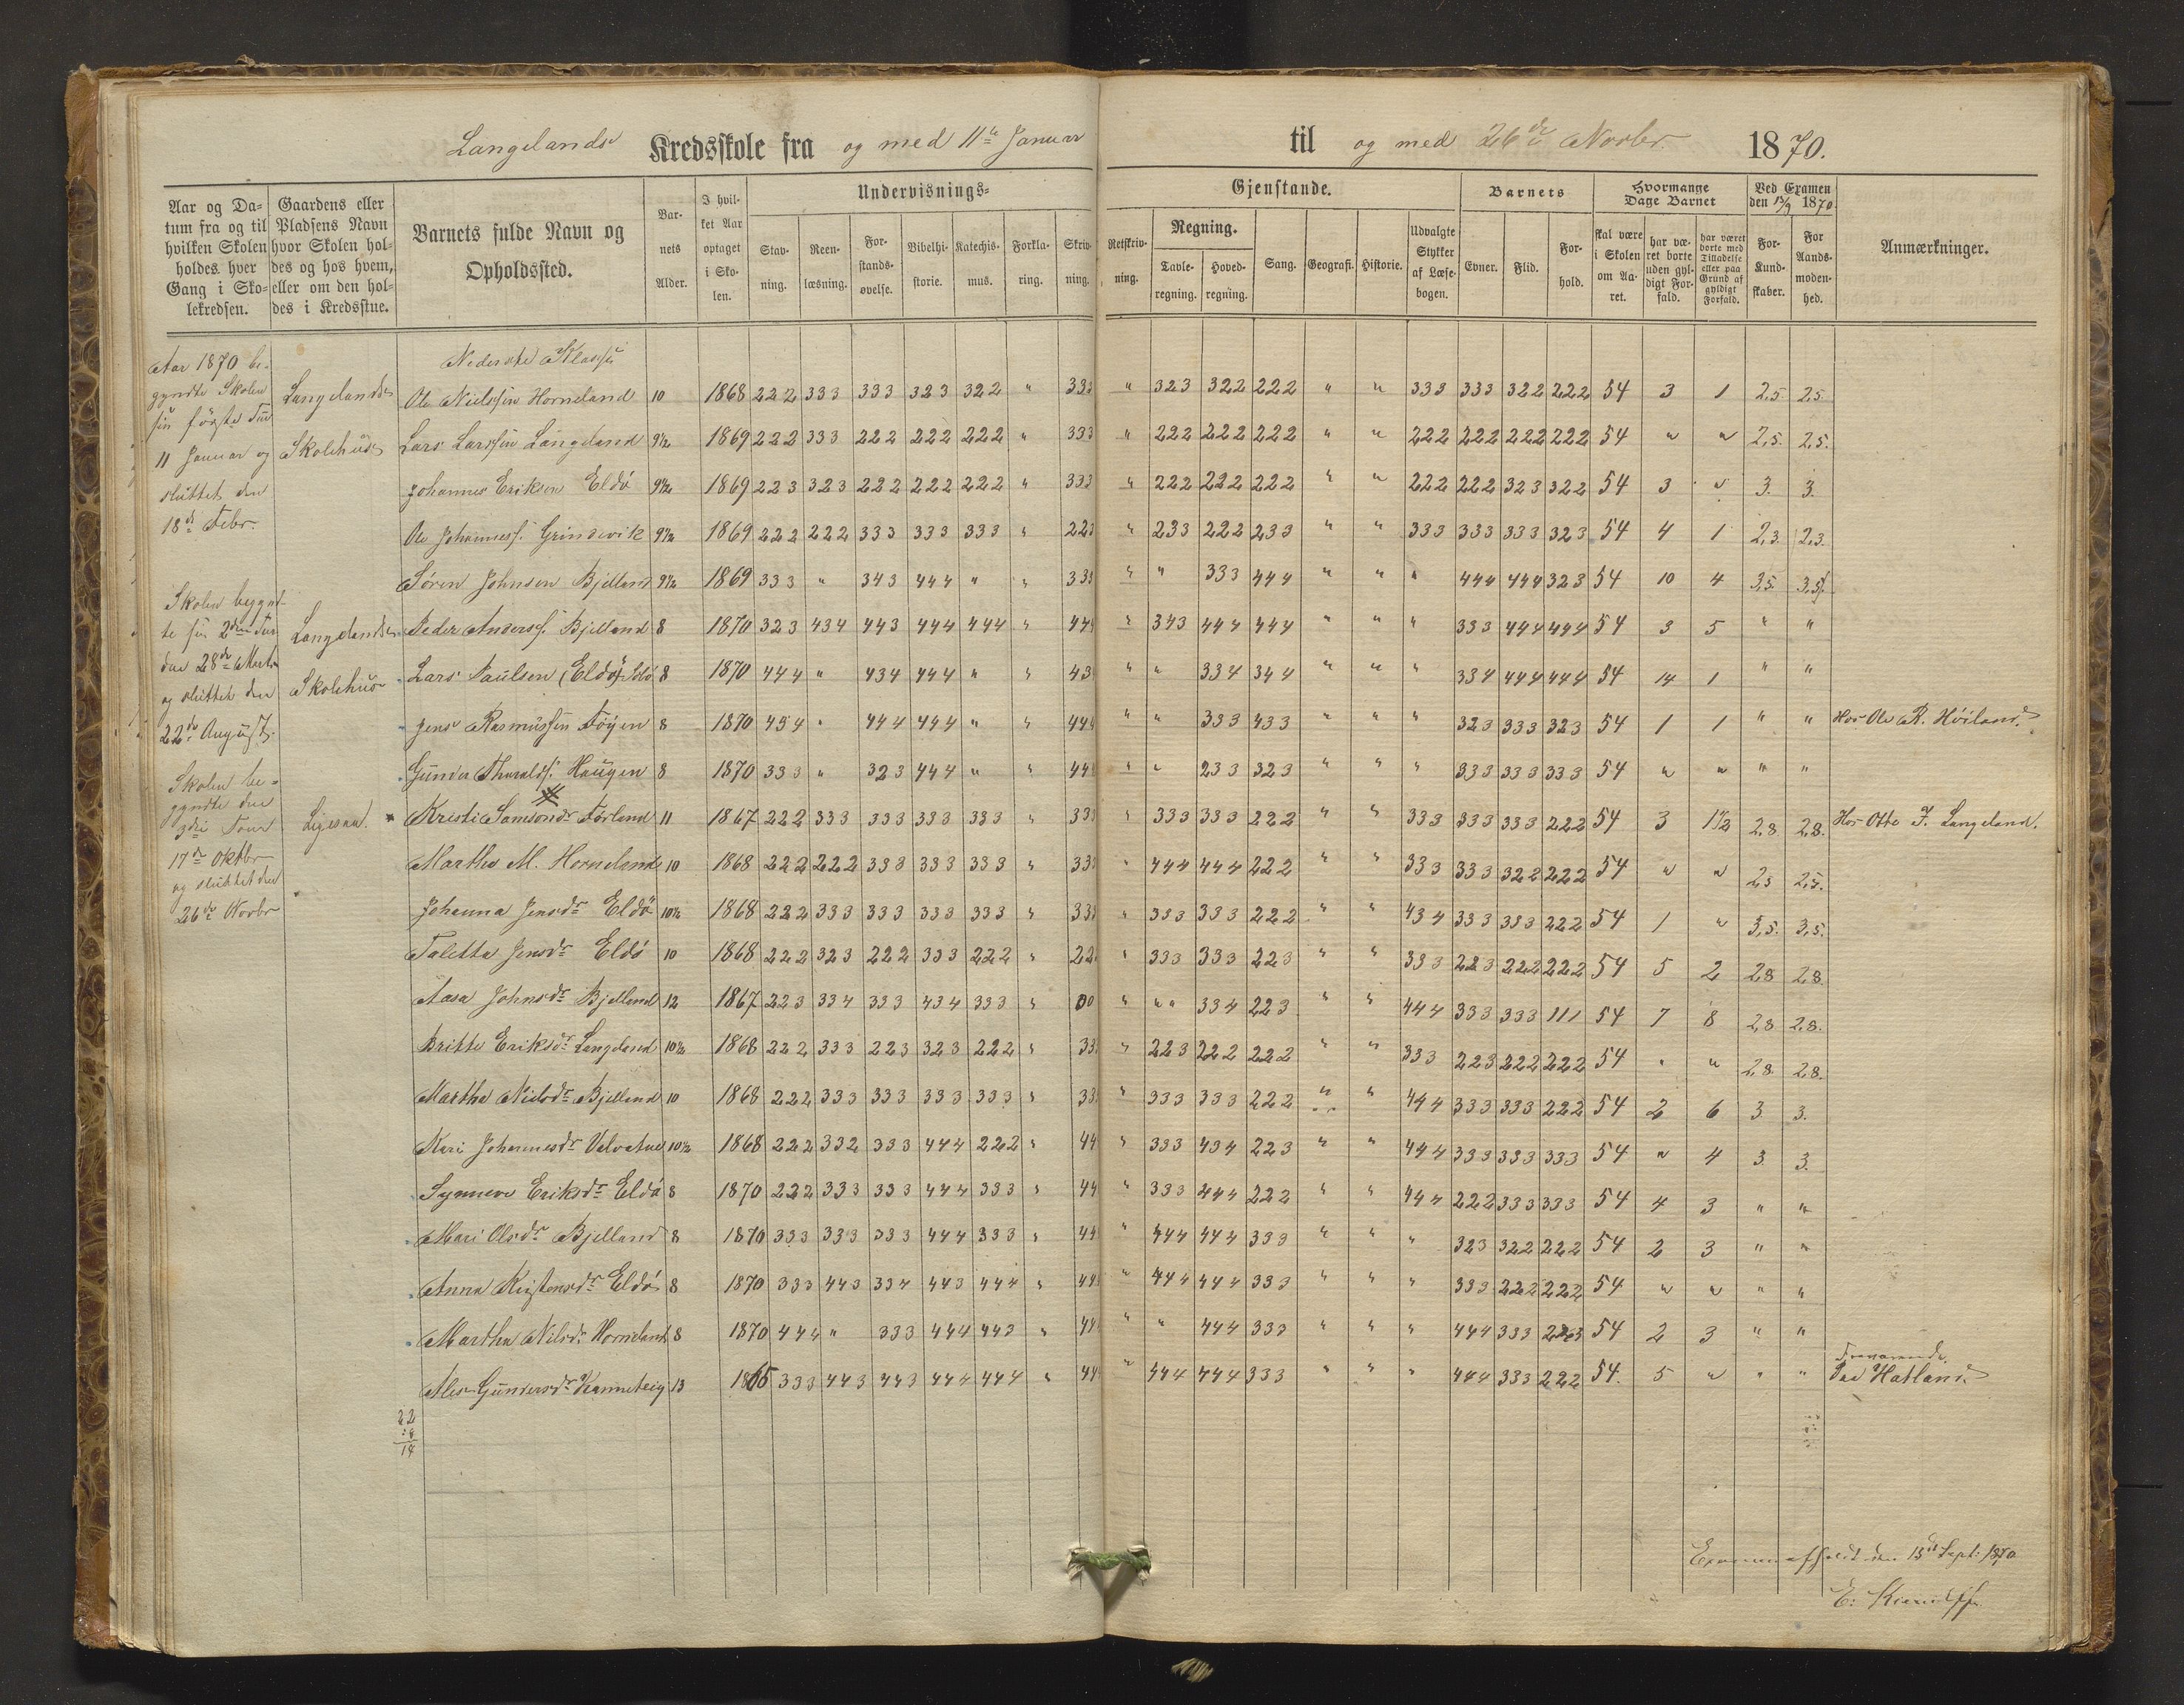 Langelands Kredsskole fra og med 11te Januar til og med 26de Novbr. 1870.
Aar og Datum fra og til hvilken Skolen holdes hver Gang i Skolekredsen.
Gaardens eller Pladsens Navn hvor Skolen holdes og hos hvem, eller om den holdes i Kredsstue.
Barnets fulde Navn og Opholdssted.
Barnets Alder.
I hvilket Aar optaget i Skolen.
Undervisnings-Gjenstande.
Stavning. Reenlæsning. Forstandsøvelse. Bibelhistorie. Katechismus. Forklaring. Skrivning. Retskrivning.
Regning. Tavleregning. Hovedregning.
Sang. Geografi. Historie. Udvalgte Stykker af Læsebogen.
Barnets Evner. Flid. Forhold.
Hvormange Dage Barnet
skal være i Skolen om Aaret.
har været borte uden gyldigt Forfald.
har været borte med Tilladelse eller paa Grund af gyldigt Forfald.
Ved Examen den 13/9 1870
For Kundskaber. For Aandsmodenhed.
Anmærkninger.
Aar 1870 be-
gyndte Skolen
sin første Tur
11 Januar og
sluttet den
18de Febr.
Langelands
Skolehus
Skolen begynd-
te sin 2den Tur
den 28de Marts
og sluttet den
22de August.
Langelands
Skolehus
Skolen be-
gyndte den
3die Tour
17de Oktbr
og sluttet den
26de Novbr
Ligesaa.
Nederste Klasse
Ole Nielssen Horneland 10 1868 222 333 333 323 322 " 333 " 323 322 222 " " 333 333 322 222 54 3 1 2,5 2,5
Lars Larssen Langeland 9½ 1869 222 333 222 222 222 " 333 " 222 222 222 " " 222 222 222 222 54 " " 2,5. 2,5.
Johannes Eriksen Eldø 9½ 1869 223 323 222 222 222 " 333 " 222 222 222 " " 222 222 323 322 54 3 " 3. 3.
Ole Johanness. Grindevik 9½ 1869 222 222 333 333 333 " 223 " 233 222 233 " " 333 333 333 323 54 4 1 2,3. 2,3.
Søren Johnsen Bjelland 9½ 1869 333 " 343 444 " " 333 " " 333 444 " " " 444 444 323 54 10 4 3,5. 3,5.
Peder Anderss. Bjelland 8 1870 323 434 443 444 444 " 444 " 343 444 444 " " " 333 444 444 54 3 5 " "
Lars Paulsen (Eldø) 8 1870 444 " 434 444 " " 43 " " 334 344 " " " 334 444 444 54 14 1 " "
Jens Rasmussen Føyen 8 1870 454 " 444 444 " " 444 " " 333 433 " " " 323 333 323 54 1 1 " " Hos Ole R. Høiland.
Gunder Tharalds. Haugen 8 1870 333 " 323 444 " " 44 " " 233 323 " " " 333 333 333 54 " " " "
Kristi Samsonsdr Førland 11 1867 222 333 333 333 333 " 33 " 333 333 222 " " 333 333 333 222 54 3 1½ 2,8 2,8. Hos Otto J. Langeland.
Martha M. Horneland 10 1868 222 222 333 333 333 " 33 " 444 444 222 " " 333 333 322 222 54 " " 2,5 2,5.
Johanna Jensdr Eldø 10½ 1868 222 333 333 333 333 " 33 " 333 333 222 " " 434 333 333 222 54 1 " 3,5. 3,5.
Taletta Jensdr Eldø 10 1868 222 323 222 333 222 " 22 " 333 333 223 " " 333 223 222 222 54 5 2 2,8 2,8.
Aasa Johnsdr Bjelland 12 1867 223 334 333 434 333 " 00 " " " 334 223 " " 444 333 333 111 54 7 8 2,8 2,8.
Britte Eriksdr Langeland 10½ 1868 222 333 223 323 222 " 33 " 223 222 222 " " 333 223 222 222 54 " " 2,8. 2,8.
Martha Nielsdr Bjelland 10 1868 222 333 333 333 333 " 33 " 333 333 222 " " 444 333 333 222 54 2 6 3 3.
Kari Johannesdr Valvatne 10½ 1868 222 332 333 444 222 " 44 " 333 434 223 " " 444 333 333 333 54 " 4 3. 3.
Synneve Eriksdr Eldø 8 1870 222 333 333 444 333 " 44 " 333 444 222 " " 444 222 333 333 54 4 3 " "
Mari Olsdr Bjelland 8 1870 333 333 333 444 333 " 44 " 444 444 333 " " " 323 322 222 54 2 3 " "
Anna Kristensdr Eldø 8 1870 333 443 334 443 444 " 44 " 444 444 333 " " " 333 222 222 54 " " " "
Martha Nilsdr Horneland 8 1870 444 " 333 444 443 " 44 " " 444 333 " " " 444 333 223 54 2 3 " "
Gundersdr Kanneteig 13 1865 333 443 443 444 444 " 44 " 444 444 333 " " " 444 333 222 54. 5 " " " Fraværende. Paa Hatland.
22
14
Examen afholdt den 13de Sept: 1870